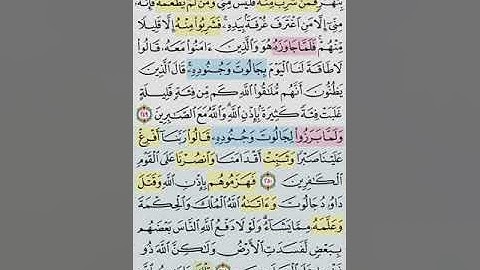 بِنَهَرٍ فَمَن شَرِبَ مِنْهُ فَلَيْسَ مِنِّي وَمَن لَّمْ يَطْعَمْهُ فَإِنَّهُۥ
مِنِّيٓ إِلَّا مَنِ ٱغْتَرَفَ غُرْفَةًۢ بِيَدِهِۦۚ فَشَرِبُوا۟ مِنْهُ إِلَّا قَلِيلًا
مِّنْهُمْۚ فَلَمَّا جَاوَزَهُۥ هُوَ وَٱلَّذِينَ ءَامَنُوا۟ مَعَهُۥ قَالُوا۟
لَا طَاقَةَ لَنَا ٱلْيَوْمَ بِجَالُوتَ وَجُنُودِهِۦۚ قَالَ ٱلَّذِينَ
يَظُنُّونَ أَنَّهُم مُّلَٰقُوا۟ ٱللَّهِ كَم مِّن فِئَةٍ قَلِيلَةٍ
غَلَبَتْ فِئَةً كَثِيرَةًۢ بِإِذْنِ ٱللَّهِۗ وَٱللَّهُ مَعَ ٱلصَّٰبِرِينَ ٢٤٩
وَلَمَّا بَرَزُوا۟ لِجَالُوتَ وَجُنُودِهِۦ قَالُوا۟ رَبَّنَآ أَفْرِغْ
عَلَيْنَا صَبْرًا وَثَبِّتْ أَقْدَامَنَا وَٱنصُرْنَا عَلَى ٱلْقَوْمِ
ٱلْكَٰفِرِينَ ٢٥٠ فَهَزَمُوهُم بِإِذْنِ ٱللَّهِ وَقَتَلَ
دَاوُۥدُ جَالُوتَ وَءَاتَىٰهُ ٱللَّهُ ٱلْمُلْكَ وَٱلْحِكْمَةَ
وَعَلَّمَهُۥ مِمَّا يَشَآءُۗ وَلَوْلَا دَفْعُ ٱللَّهِ ٱلنَّاسَ بَعْضَهُم
بِبَعْضٍ لَّفَسَدَتِ ٱلْأَرْضُ وَلَٰكِنَّ ٱللَّهَ ذُو